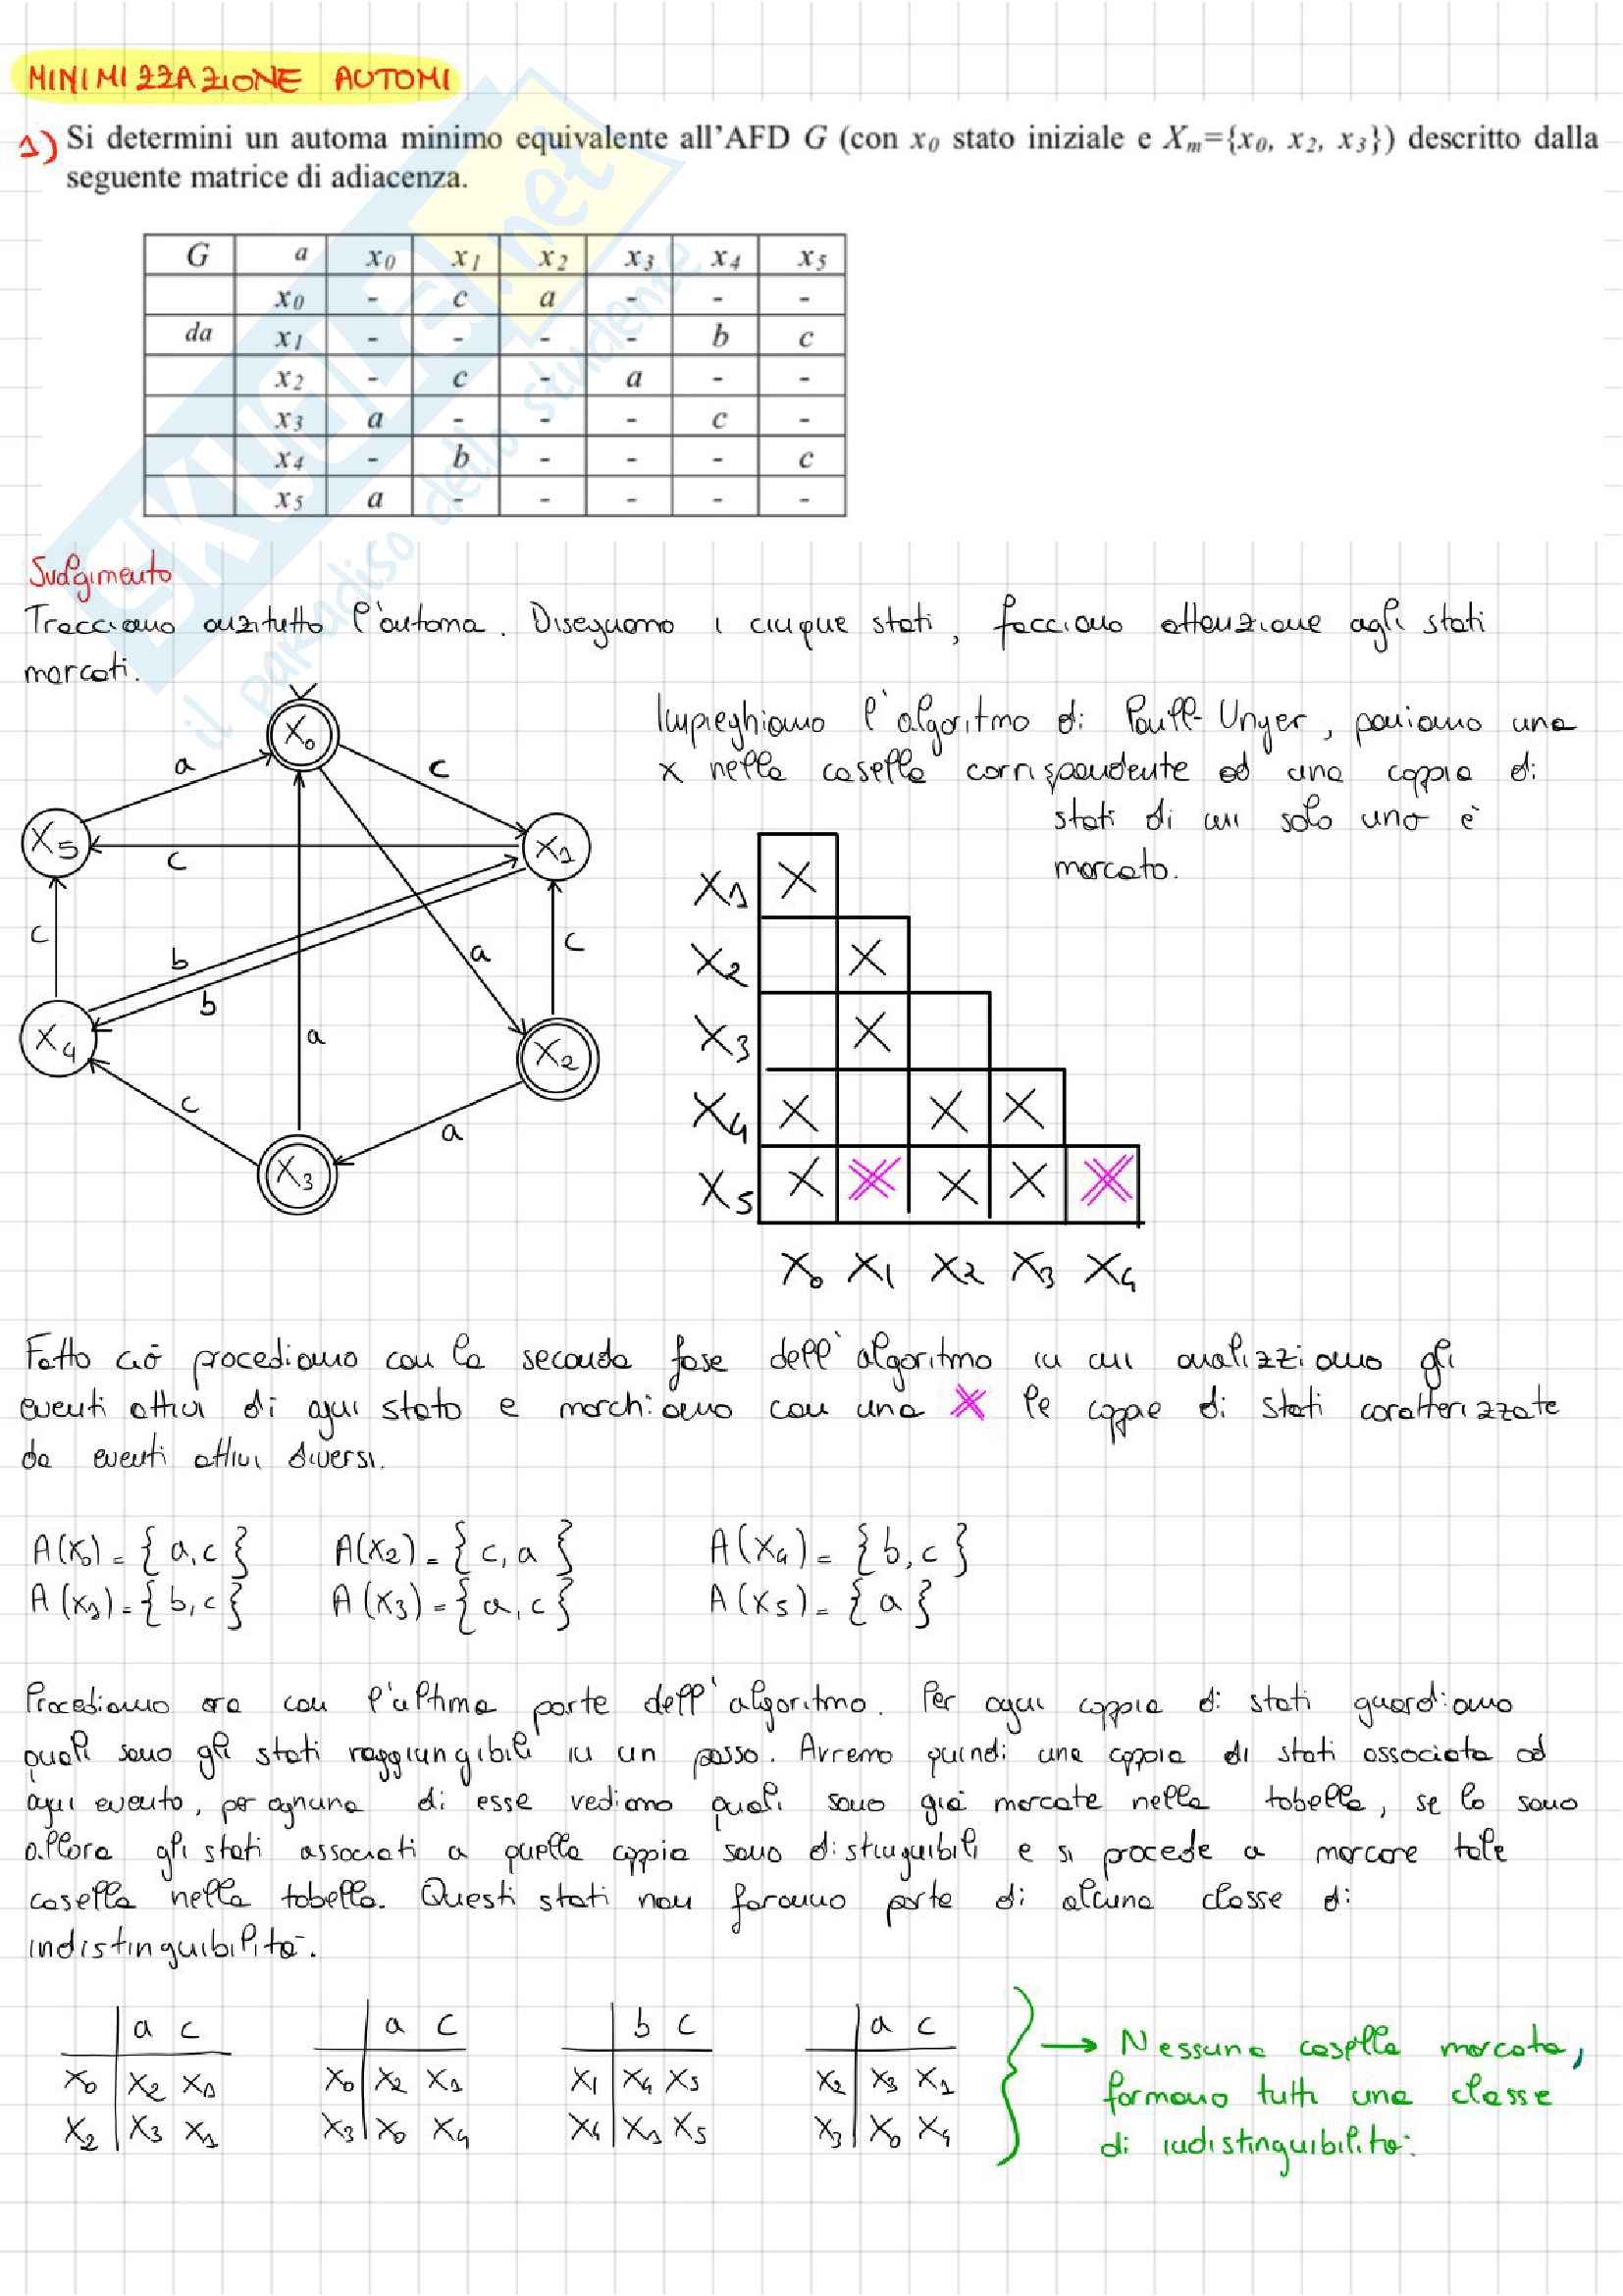 MINIMIZZAZIONE AUTOMI
1) Si determini un automa minimo equivalente all'AFD G (con x0 stato iniziale e Xm={x0, x2, x3}) descritto dalla
seguente matrice di adiacenza.
G a x0 x1 x2 x3 x4 x5
x0 - c a - - -
da x1 - - - - b c
x2 - c - a - -
x3 a - - - c -
x4 - b - - - c
x5 a - - - - -
SKUOLA.net
il paradiso dello studente
Svolgimento
Tracciamo anzitutto l'automa. Disegnamo i cinque stati, facciamo attenzione agli stati
marcati.
Impieghiamo l'algoritmo di Paull-Unger, poniamo una
x nella casella corrispondente ad una coppia di
stati di cui solo uno è
marcato.
X0
a
c
X5
X1
c
c
b
a
c
b
X4
a
X2
c
a
X3
X1 X
X2 X
X3 X
X4 X X X
X5 X X X X X
X0 X1 X2 X3 X4
Fatto ciò procediamo con la seconda fase dell'algoritmo in cui analizziamo gli
eventi attivi di ogni stato e marchiamo con una X le coppie di stati caratterizzate
da eventi attivi diversi.
A(x0) = {a,c} A(x2) = {c,a} A(x4) = {b,c}
A(x1) = {b,c} A(x3) = {a,c} A(x5) = {a}
Procediamo ora con l'ultima parte dell'algoritmo. Per ogni coppia di stati guardiamo
quali sono gli stati raggiungibili in un passo. Avremo quindi una coppia di stati associata ad
ogni evento, per ognuna di esse vediamo quali sono già marcate nella tabella, se lo sono
allora gli stati associati a quella coppia sono distinguibili e si procede a marcare tale
casella nella tabella. Questi stati non faranno parte di alcuna classe di
indistinguibilità.
a c a c b c a c
X0 X2 X1 X0 X2 X1 X1 X4 X5 X2 X3 X1
X2 X3 X1 X3 X0 X4 X4 X1 X5 X3 X0 X4
→ Nessuna casella marcata,
formano tutti una classe
di indistinguibilità.